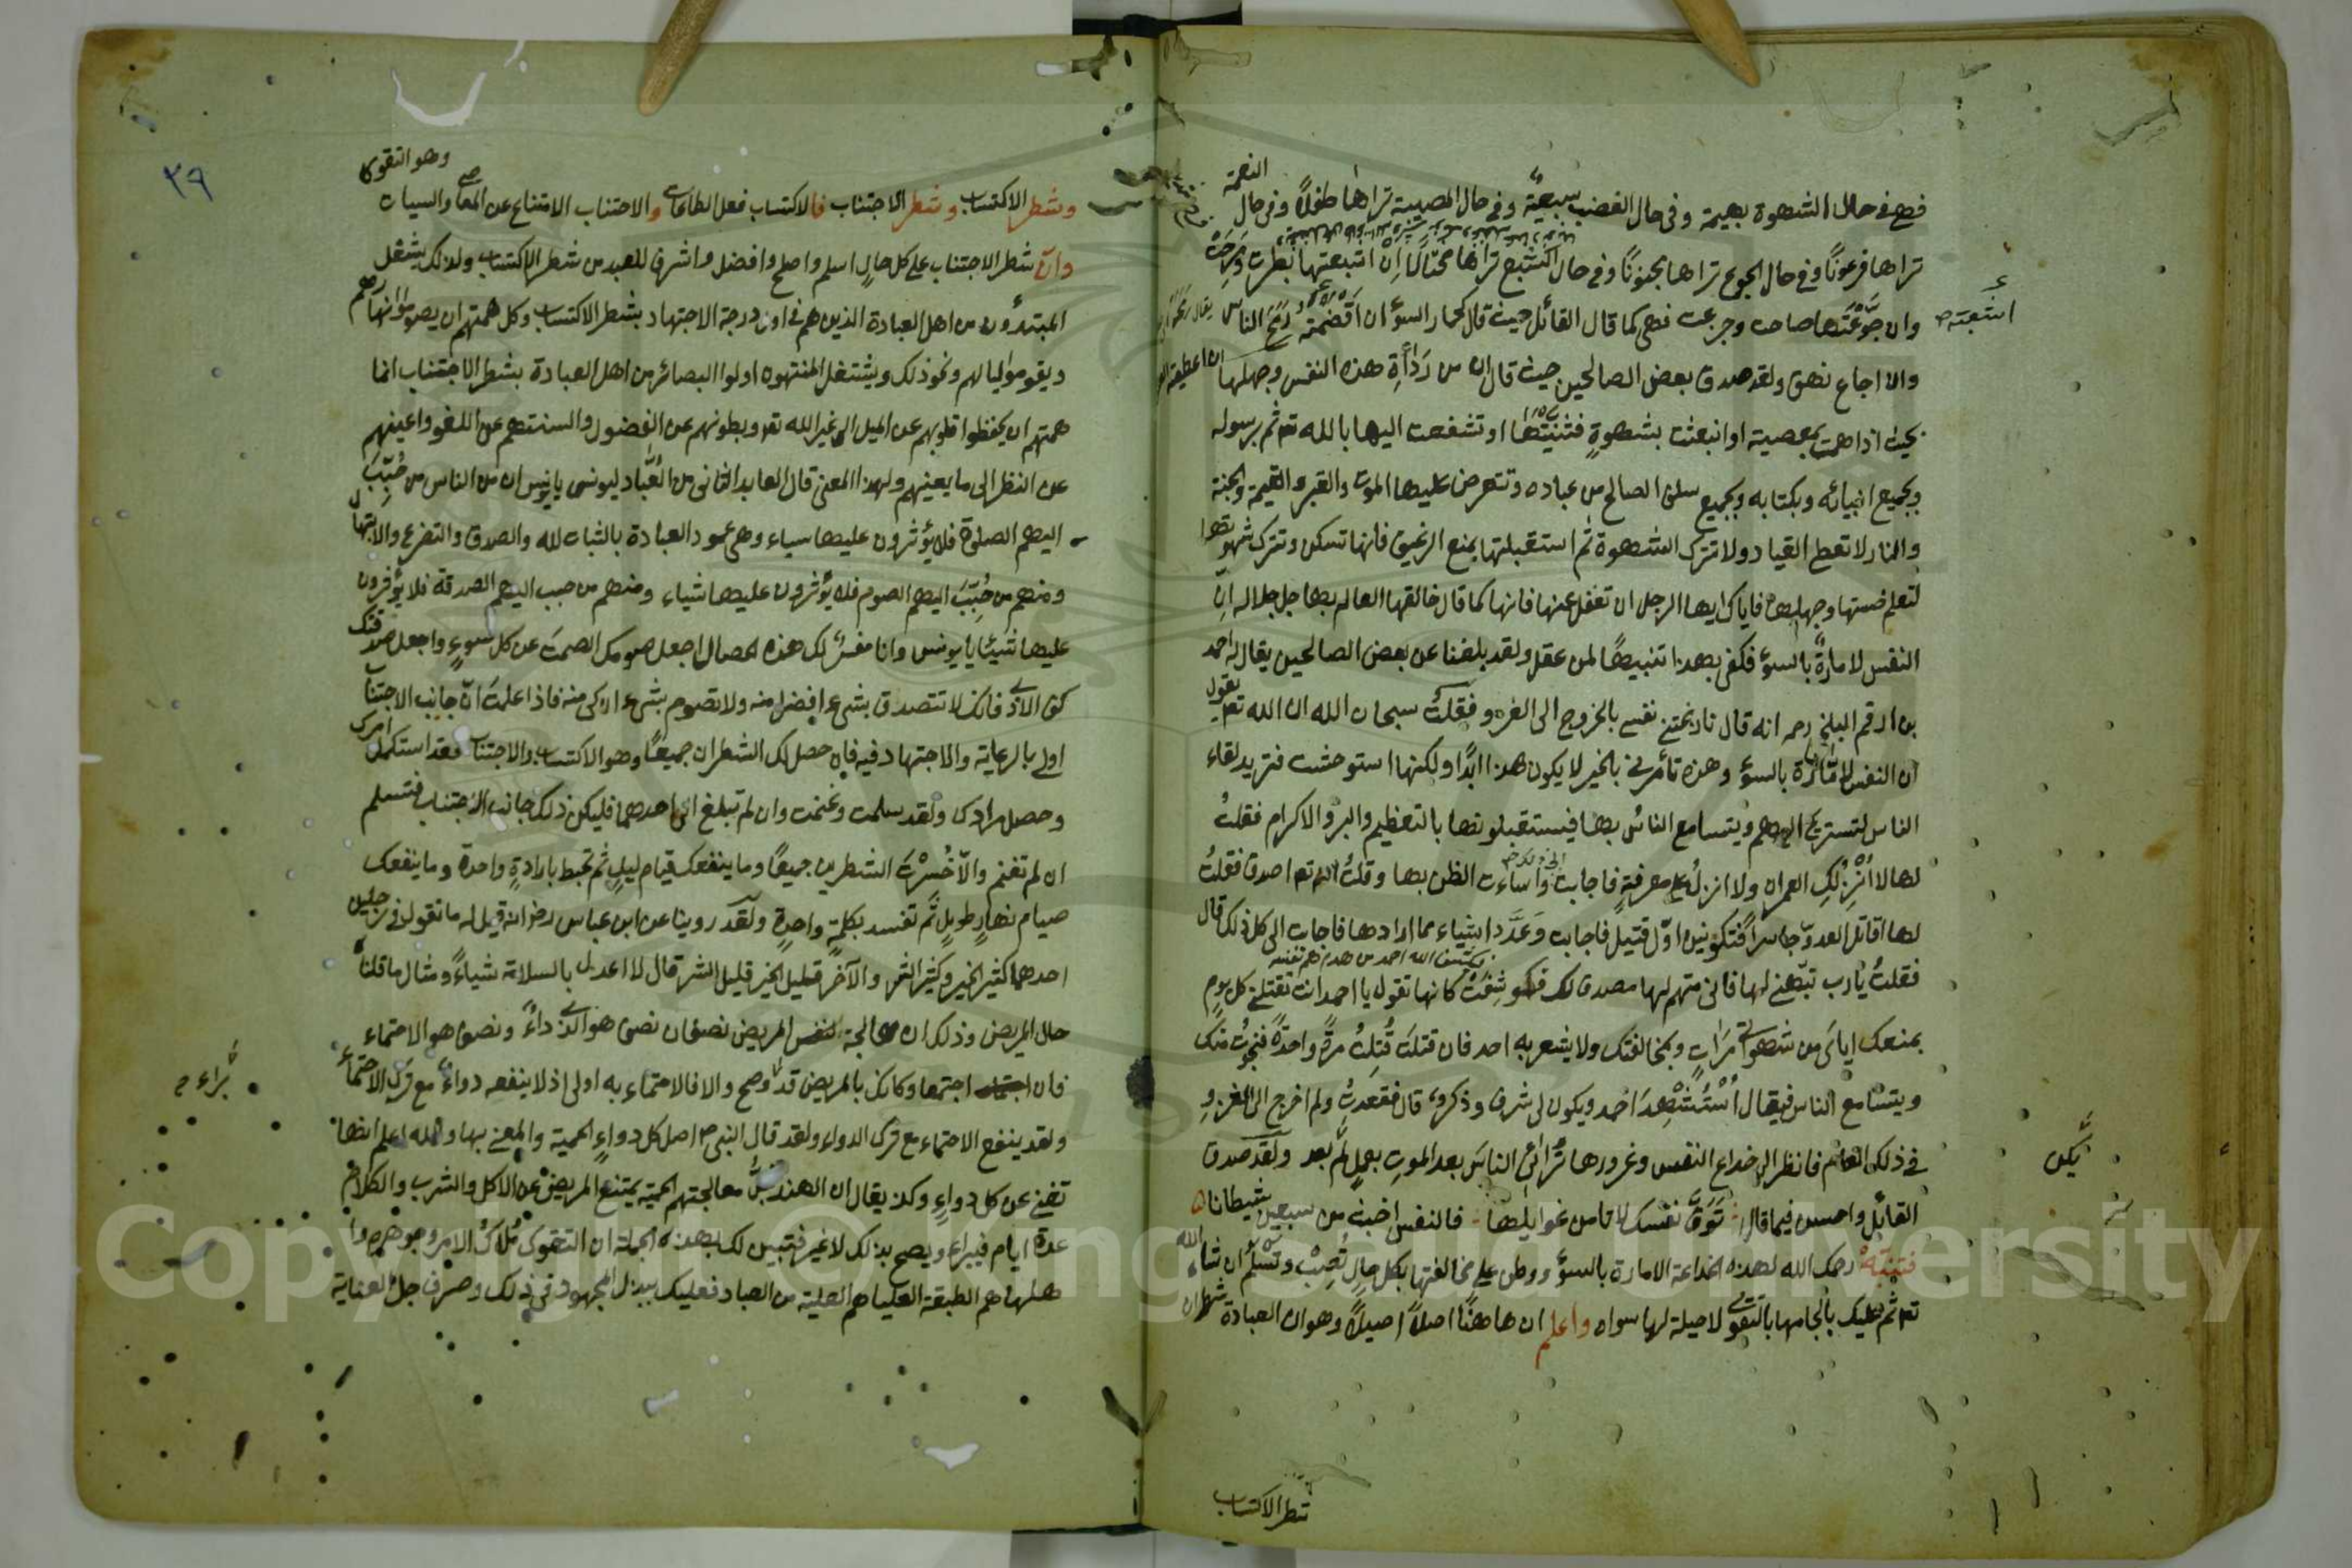 النعمة
فهى فى حال الشهوة بهيمة وفى حال الغضب سبعيّة وفى حال المصيبة تراها طفلاً وفى حال
تراها فرعونًا وفى حال الجوع تراها مجنونًا وفى حال الشبع تراها مختالًا ان اشبعتها بطرت ومرحت
وان جوّعتها صاحت وجزعت فهى كما قال القائل حيث قال كحمار السوء ان اقضمته رمح الناس
والا اجاع نهق ولقد صدق بعض الصالحين حيث قال ان من ردأة هذه النفس وجهلها
بحيث اذا همت بمعصية او انبعثت بشهوةٍ فثنيتها او تشفعت اليها بالله تع ثم برسوله
وبجميع انبيائه وبكتابه وبجميع سلف الصالح من عباده وتتعرض عليها الموت والقبر والقيمة والجنة
والنار لا تعط القياد ولا تترك الشهوة ثم استقبلتها بمنع الرغيف فانها تسكن وتترك شهوتها
لتعلم خستها وجهلها فاياك ايها الرجل ان تغفل عنها فانها كما قال خالقها العالم بها جل جلاله انّ
النفس لامارة بالسوء فكفى بهذا تنبيهًا لمن عقل ولقد بلغنا عن بعض الصالحين يقال له احمد
بن ارقم البلخى رحمه انه قال نازعتنى نفسى بالخروج الى الغزو فقلتُ سبحان الله ان الله تع يقول
ان النفس لامّارة بالسوء وهذه تأمرنى بالخير لا يكون هذا ابدًا ولكنها استوحشت فتريد لقاء
الناس لتستريح اليهم ويتسامع الناس بها فيستقبلونها بالتعظيم والبر والاكرام فقلتُ
لها لا انزلكِ العمران ولا انزل على معرفةٍ فاجابت واساءت الظن بها وقلتُ الله تع اصدق فقلتُ
لها اقاتل العدوّ حاسرًا فتكونين اوّل قتيل فاجابت وعدّد اشياء مما ارادها فاجابت الى كل ذلك قال
فقلتُ يا رب نبّهنى لها فانى متهم لها مصدق لك فكوشفتُ كانها تقول يا احمد انت تقتلنى كل يوم
بمنعك اياى من شهواتى مرات وبمخالفتك ولا يشعر به احد فان قتلت قُتلتُ مرّة واحدة فنجوتُ منك
ويتسامع الناس فيقال اُستُشهد احمد ويكون لى شرف وذكر قال فقعدتُ ولم اخرج الى الغزوِ
فى ذلك العام فانظر الى خداع النفس وغرورها ترائى الناس بعد الموت بعملٍ لم بعد ولقد صدق
القائل واحسن فيما قال توقّ نفسك لا تامن غوايلها فالنفس اخبث من سبعين شيطانا
فتنبّه رحمك الله لهذه الخداعة الامارة بالسوء ووطن على مخالفتها بكل حالٍ تُصِبْ وتسلم ان شاء الله
تع ثم عليك بالجامها بالتقوى لا حيلة لها سواه واعلم ان هاهنا اصلاً اصيلاً وهو ان العبادة شطران
يكن
شطر الاكتساب
٣٩
وهو التقوى
وشطر الاكتساب وشطر الاجتناب فالاكتساب فعل الطاعات والاجتناب الامتناع عن المعاصى والسيات
وانّ شطر الاجتناب على كل حالٍ اسلم واصلح وافضل واشرف للعبد من شطر الاكتساب ولذلك يشتغل
المبتدؤن من اهل العبادة الذين هم فى اول درجة الاجتهاد بشطر الاكتساب وكل همتهم ان يصوموا نهارهم
ويقوموا ليالهم ونحو ذلك ويشتغل المنتهون اولوا البصائر من اهل العبادة بشطر الاجتناب انما
همتهم ان يحفظوا قلوبهم عن الميل الى غير الله تع وبطونهم عن الفضول والسنتهم عن اللغو واعينهم
عن النظر الى ما يعينهم ولهذا المعنى قال العابد الثانى من العُبّاد ليونس يا يونس ان من الناس من حُبّب
اليهم الصلوة فلا يؤثرون عليها سياء وهى عمود العبادة بالثبات لله والصدق والتضرع والابتهال
ومنهم من حُبّب اليهم الصوم فلا يؤثرون عليها شياء ومنهم من حبب اليهم الصدقة فلا يؤثرون
عليها شيئا يا يونس وانا مفسر لك هذه الخصال اجعل صومك الصمت عن كل سوءٍ واجعل صدقتك
كف الاذى فانك لا تتصدق بشىء افضل منه ولا تصوم بشىء ازكى منه فاذا علمت انّ جانب الاجتناب
اولى بالرعاية والاجتهاد فيه فان حصل لك الشطران جميعًا وهو الاكتساب والاجتناب فقد استكمل امرك
وحصل مرادك ولقد سلمت وغنمت وان لم تبلغ الى احدهما فليكن ذلك جانب الاجتناب فتسلم
ان لم تغنم والّا خُسرت الشطرين جميعًا وما ينفعك قيام ليلٍ ثم تحبط بارادةٍ واحدة وما ينفعك
صيام نهارٍ طويلٍ ثم تفسد بكلمةٍ واحدةٍ ولقد روينا عن ابن عباس رض انه قيل له ما تقول فى رجلين
احدهما كثير الخير وكثير الشر والآخر قليل الخير قليل الشر قال لا اعدل بالسلامة شياءً ومثال ما قلناه
حال المريض وذلك ان معالجة المريض نصفان نصف هو الدواءُ ونصف هو الاحتماء
فان اجتمعا وكانك بالمريض قد برأ وصح والا فالاحتماء به اولى اذ لا ينفعه دواء مع ترك الاحتماء
ولقد ينفع الاحتماء مع ترك الدواء ولقد قال النبى م اصل كل دواءٍ الحمية والمعنى بها والله اعلم انها
تغنى عن كل دواءٍ وكذ يقال ان الهند جلّ معالجتهم الحمية يمتنع المريض عن الاكل والشرب والكلام
عدة ايام فيبراء ويصح بذلك لا غير فتبين لك بهذه الجملة ان التقوى مُلاك الامر وجوهره وا
هلها هم الطبقة العليا هم العلية من العباد فعليك ببذل المجهود فى ذلك وصرف جل العناية
Copyright © King Saud University